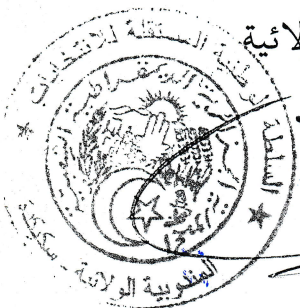 لائية
السلطة الوطنية المستقلة للانتخابات
الجمهورية الجزائرية الديمقراطية الشعبية
المندوبية الولائية - سكيكدة